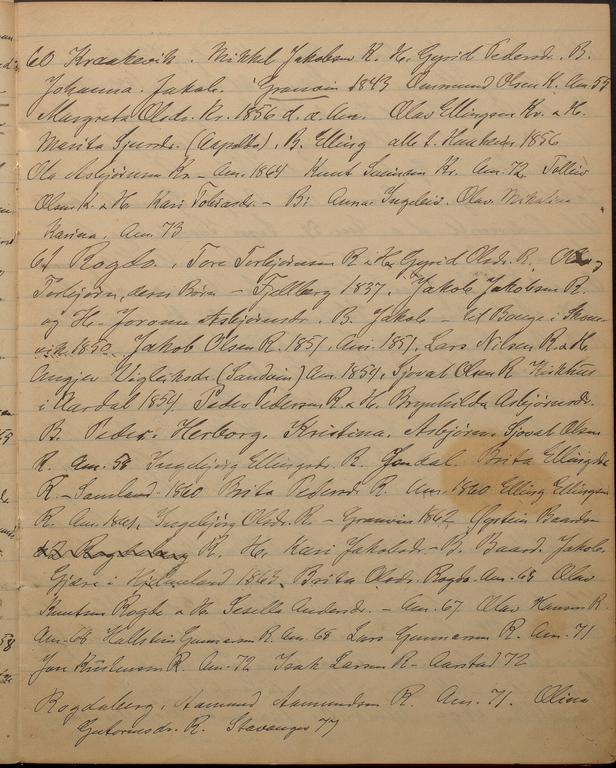 60 Kraakevik. Mikkel Jakobsen K. H. Gyrid Pedersd. B.
Johanna. Jakob. Granvin 1843 Aamund Olsen K. Am. 55
Margreta Olsdr. Kr. 1856 d. a. Am. Olav Ellingsen Kr. & H.
Marita Sjursdr. (Aapolto). B. Elling alle t. Haaheim 1856
Ola Asbjørnsen Kr. - Am. 1864 Knut Kr. Am. 72 Tolleiv
Olsen K. & H. Kari Toleivsdr. - B: Anna. Ingeleiv. Olav. Mikalina
Karina. Am. 73
61 Rogde. Tore Torbjørnsen R & H. Gyrid Olsdr. B. Ol og
Torbjørn, deres Børn - Fjellberg 1837. Jakob Jakobsen R.
og H. Jorønne Asbjørnsdr. B. Jakob - til Bauge i Skone-
vik 1850. Jakob Olsen R. 1851 Am. 1851. Lars Nilsen R. & H.
Angjer Vigleiksdr. (Sandvin) Am 1854. Sjovat Olsen R
i Aardal 1854. Peder Pedersen R. & H. Brynhilda Asbjørnsdr.
B. Peder. Herborg. Kristina. Asbjørn. Sjovat Olsen
R. Am. 58 Ingebjørg Ellingsdr. R. Jondal. Brita Ellingsdr
R. - Samland 1860 Brita Pedersdr R. Am. 1860 Elling Ellingsen
R. Am. 1861. Ingebjørg Olsdr. R. - Granvin 1862 Øystein Baardsen
R. H. Kari Jakobsdr. - B. Baard. Jakob.
Gjære i Hjelmeland 1863. Brita Olsdr. Rogde. Am. 63 Olav
Knutsen Rogde & H. Sesella Andersdr. - Am. 67 Olav Hansen R
Am. 68 Hallstein Gunnarsen R. Am. 68 Lars Gunnarsen R. Am. 71
Jon R. Am. 72 Isak Larsen R - Aarstad 72
Rogdaberg. Aamund Aamundsen R. Am. 71. Olina
Gutormsdr. R. Stavanger 77